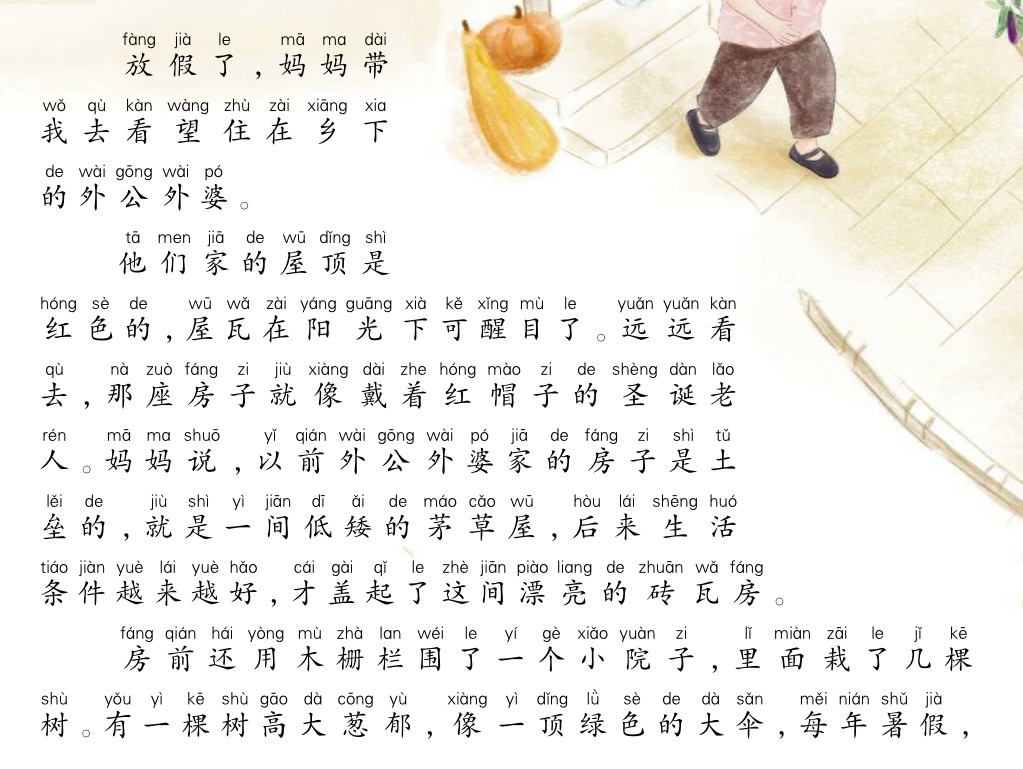 fàng jià le mā ma dài
放假了，妈妈带
wǒ qù kàn wàng zhù zài xiāng xia
我去看望住在乡下
de wài gōng wài pó
的外公外婆。
tā men jiā de wū dǐng shì
他们家的屋顶是
hóng sè de wū wǎ zài yáng guāng xià kě xǐng mù le yuǎn yuǎn kàn
红色的，屋瓦在阳光下可醒目了。远远看
qù nà zuò fáng zi jiù xiàng dài zhe hóng mào zi de shèng dàn lǎo
去，那座房子就像戴着红帽子的圣诞老
rén mā ma shuō yǐ qián wài gōng wài pó jiā de fáng zi shì tǔ
人。妈妈说，以前外公外婆家的房子是土
lěi de jiù shì yì jiān dī ǎi de máo cǎo wū hòu lái shēng huó
垒的，就是一间低矮的茅草屋，后来生活
tiáo jiàn yuè lái yuè hǎo cái gài qǐ le zhè jiān piào liang de zhuān wǎ fáng
条件越来越好，才盖起了这间漂亮的砖瓦房。
fáng qián hái yòng mù zhà lan wéi le yí gè xiǎo yuàn zi lǐ miàn zāi le jǐ kē
房前还用木栅栏围了一个小院子，里面栽了几棵
shù yǒu yì kē shù gāo dà cōng yù xiàng yì dǐng lǜ sè de dà sǎn měi nián shǔ jià
树。有一棵树高大葱郁，像一顶绿色的大伞，每年暑假，